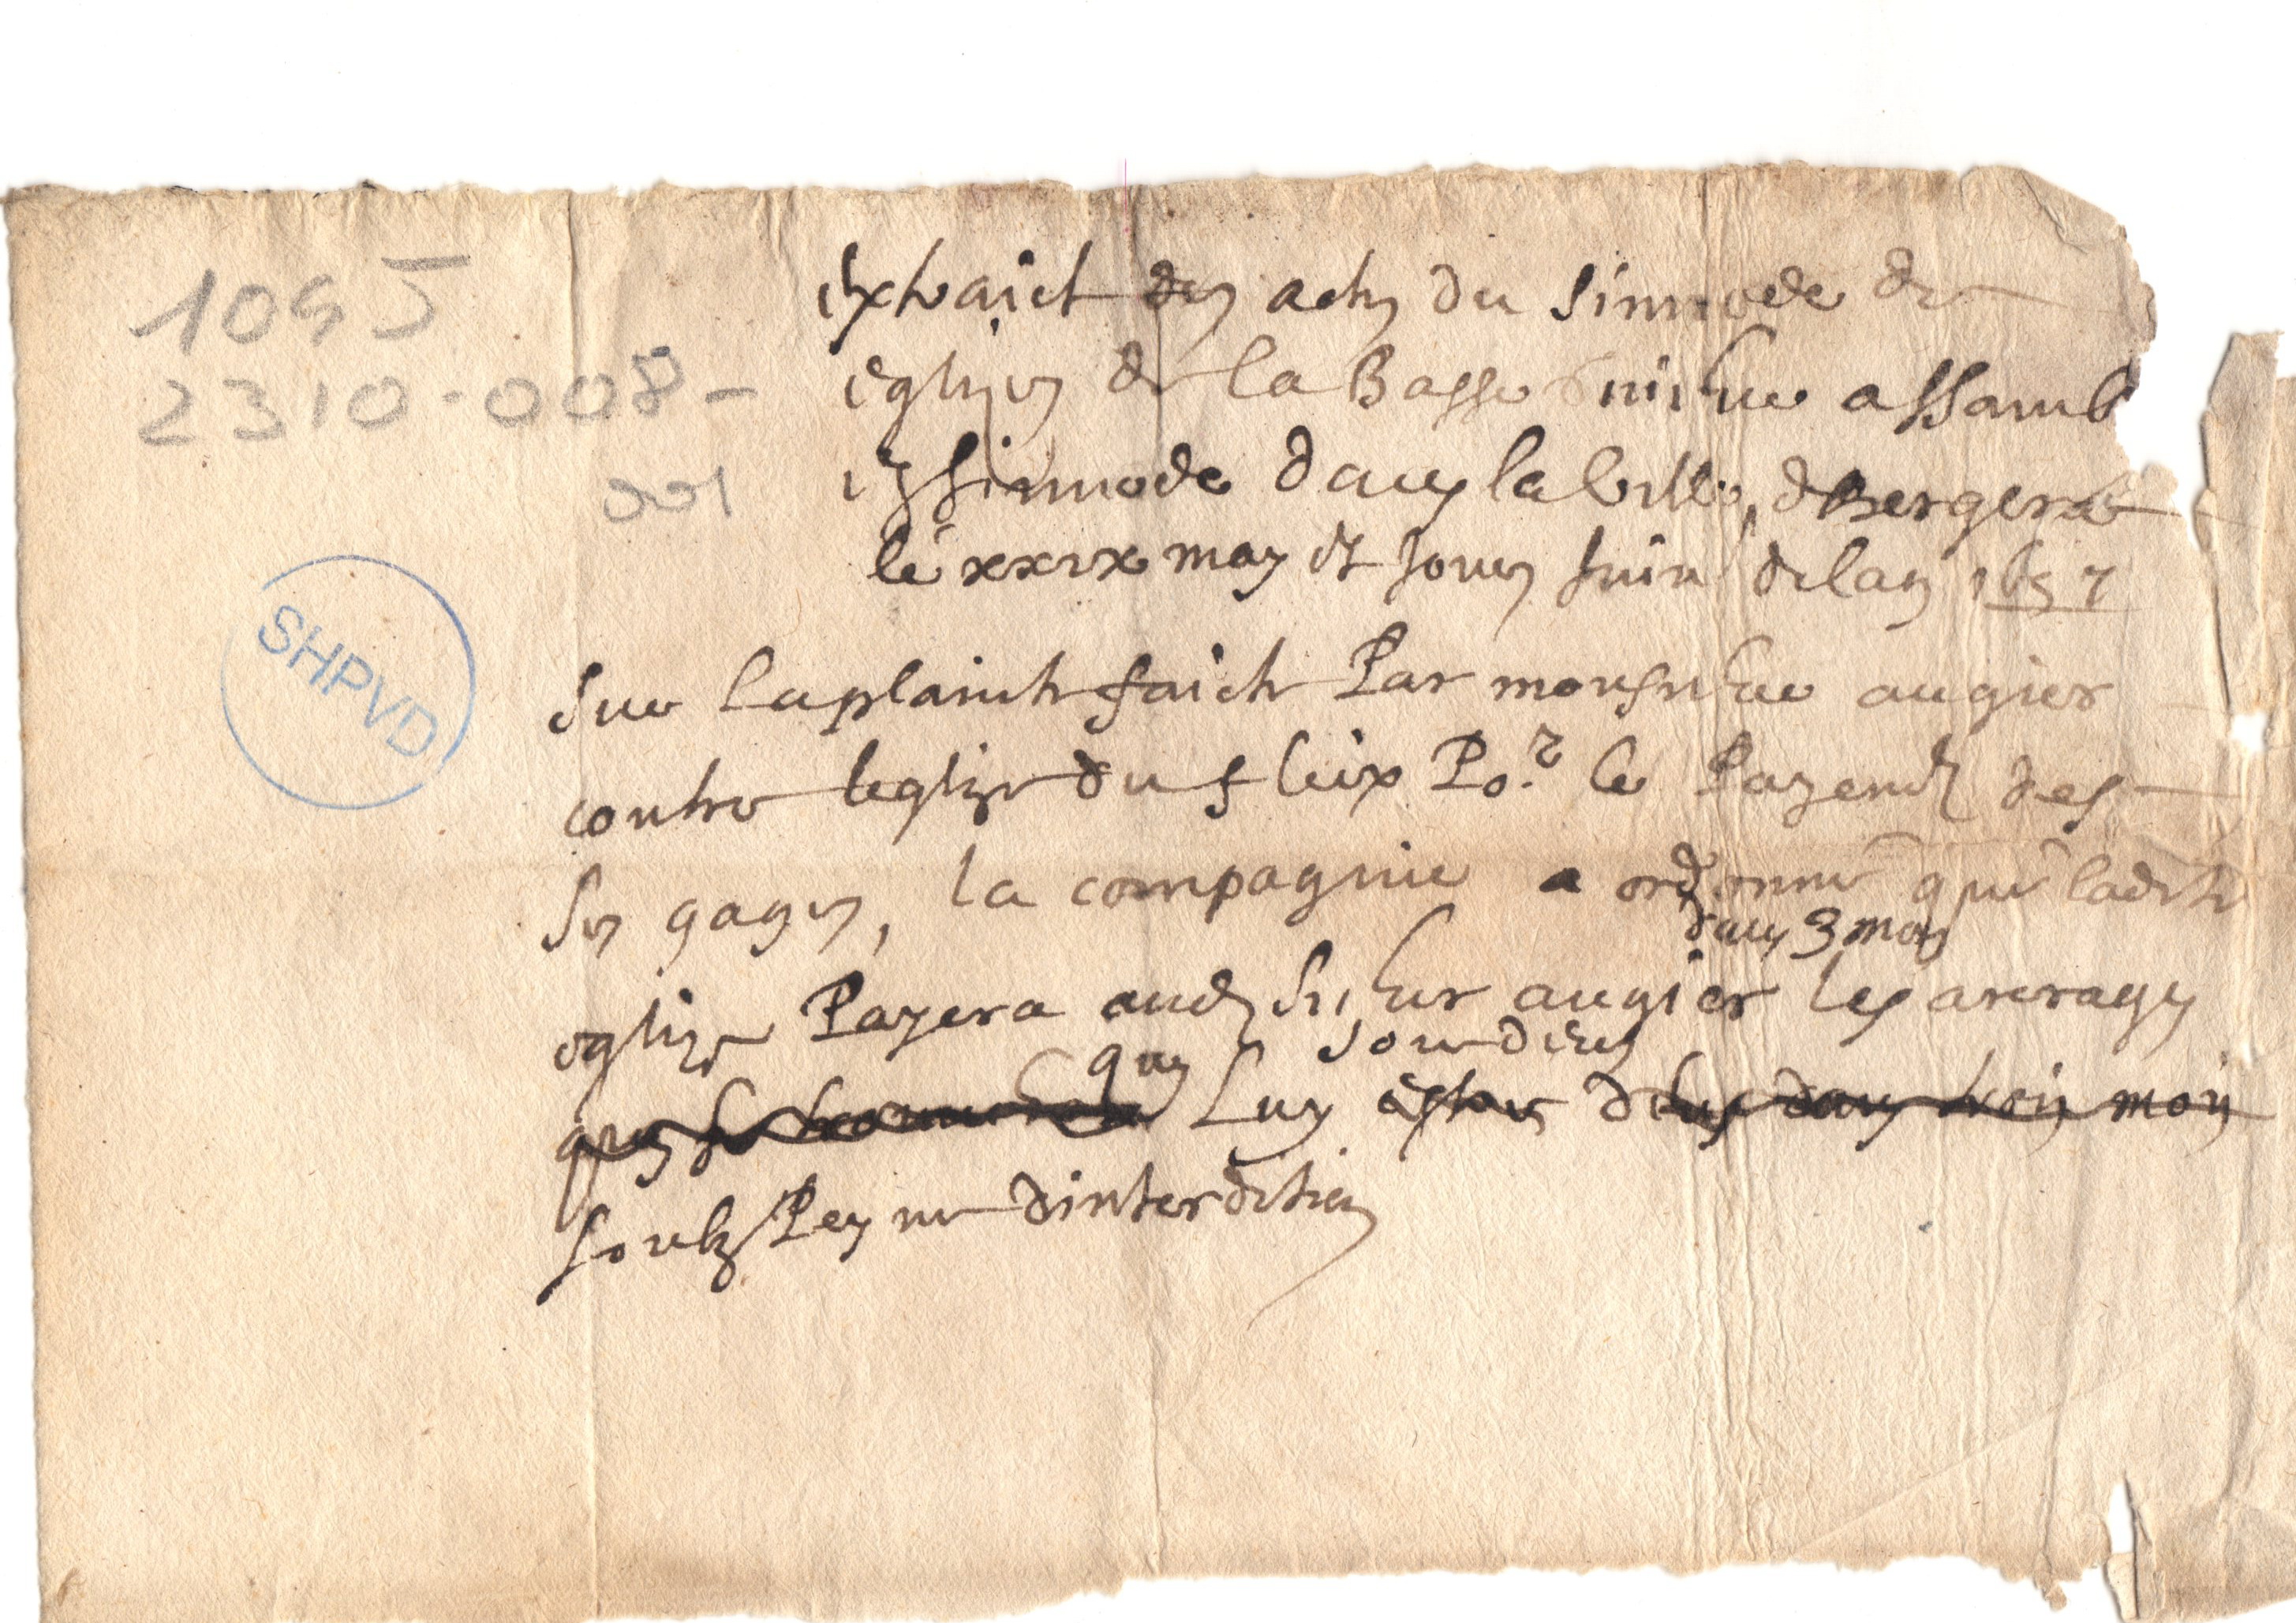 109 J
2310-008-
001
SHPVD
extraict des actes du sinnode de
eglizes de la Basse Guiene assamb
en sinnode dans la ville de Bergerac
le xxix may et jours suiv delan 1657
sur la plainte faicte Par monsieur augier
contre leglize du fleix Po.r le Payemt des
ses gages, la compagnie a ordonné que ladite
dans 3 mois
eglize Payera aud sieur augier les arerages
quy sont deus
quy se luy estre deus dans trois mois
soubz Peyne dinterdition